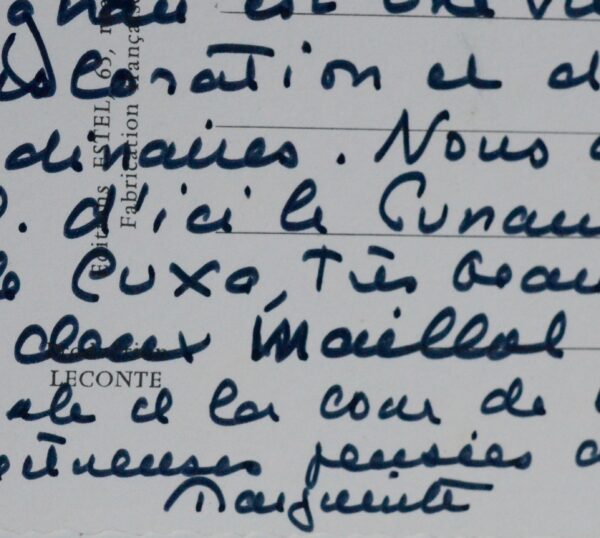 est une
décoration et d
dinaires. Nous
P. d'ici le
Cuxa, Très beau
deux Maillol
LECONTE
ale et la cour de
ectueuses pensées
Marguerite
Editions ESTEL, 65,
Fabrication França